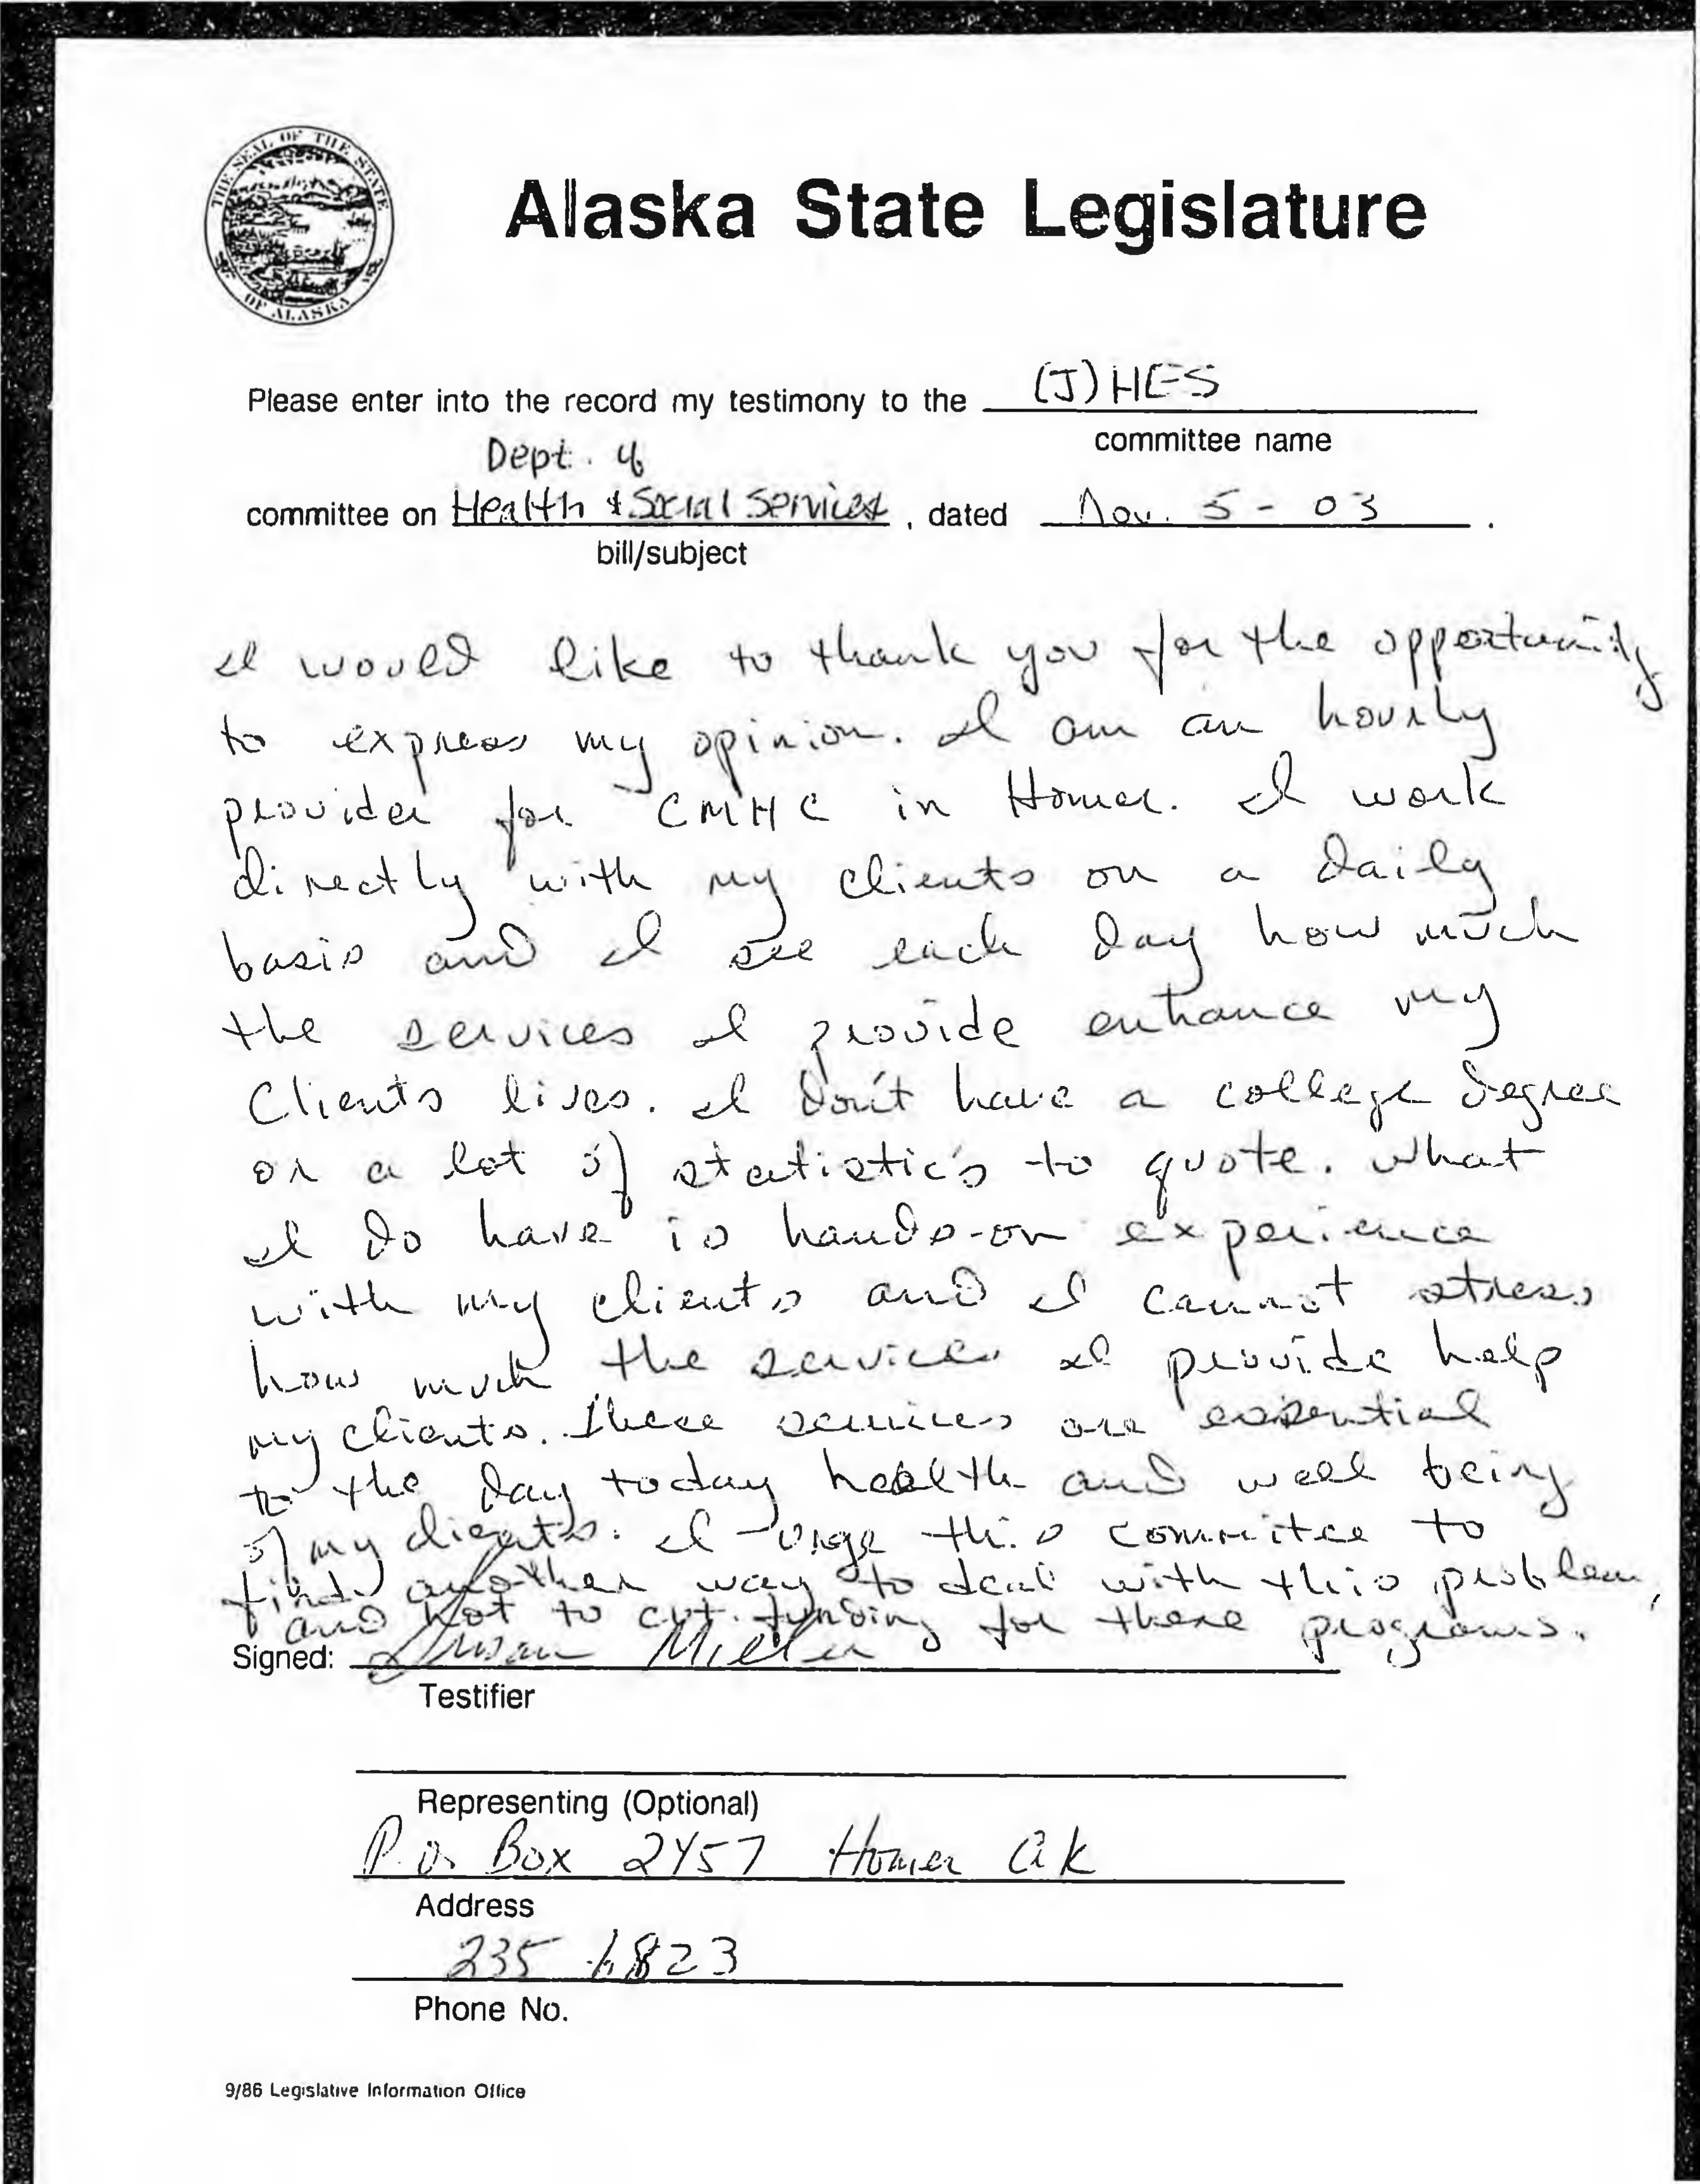 THE SEAL OF THE STATE OF ALASKA
Alaska State Legislature
Please enter into the record my testimony to the (J) HES
committee name
Dept. of
committee on Health & Social Services, dated Nov. 5 - 03.
bill/subject
I would like to thank you for the opportunity
to express my opinion. I am an hourly
provider for CMHC in Homer. I work
directly with my clients on a daily
basis and I see each day how much
the services I provide enhance my
Clients lives. I don't have a college degree
or a lot of statistic's to quote. What
I do have is hands-on experience
with my clients and I cannot stress
how much the services I provide help
my clients. These services are essential
to the day today health and well being
of my clients. I urge this committee to
find another way to deal with this problem,
and not to cut funding for these programs.
Signed: Susan Miller
Testifier
Representing (Optional)
P.O. Box 2457 Homer AK
Address
235 6823
Phone No.
9/86 Legislative Information Office